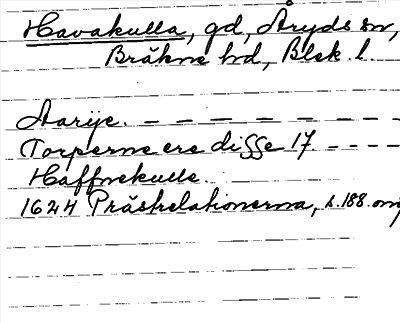 Havakulla, gd, Åryds sn,
Bräkne hd, Blek. l.
Aarije. — — — — — — —
Torperne ere disse 17. — — — —
Haffnekulle.
1624 Prästrelationerna, s. 188. omf